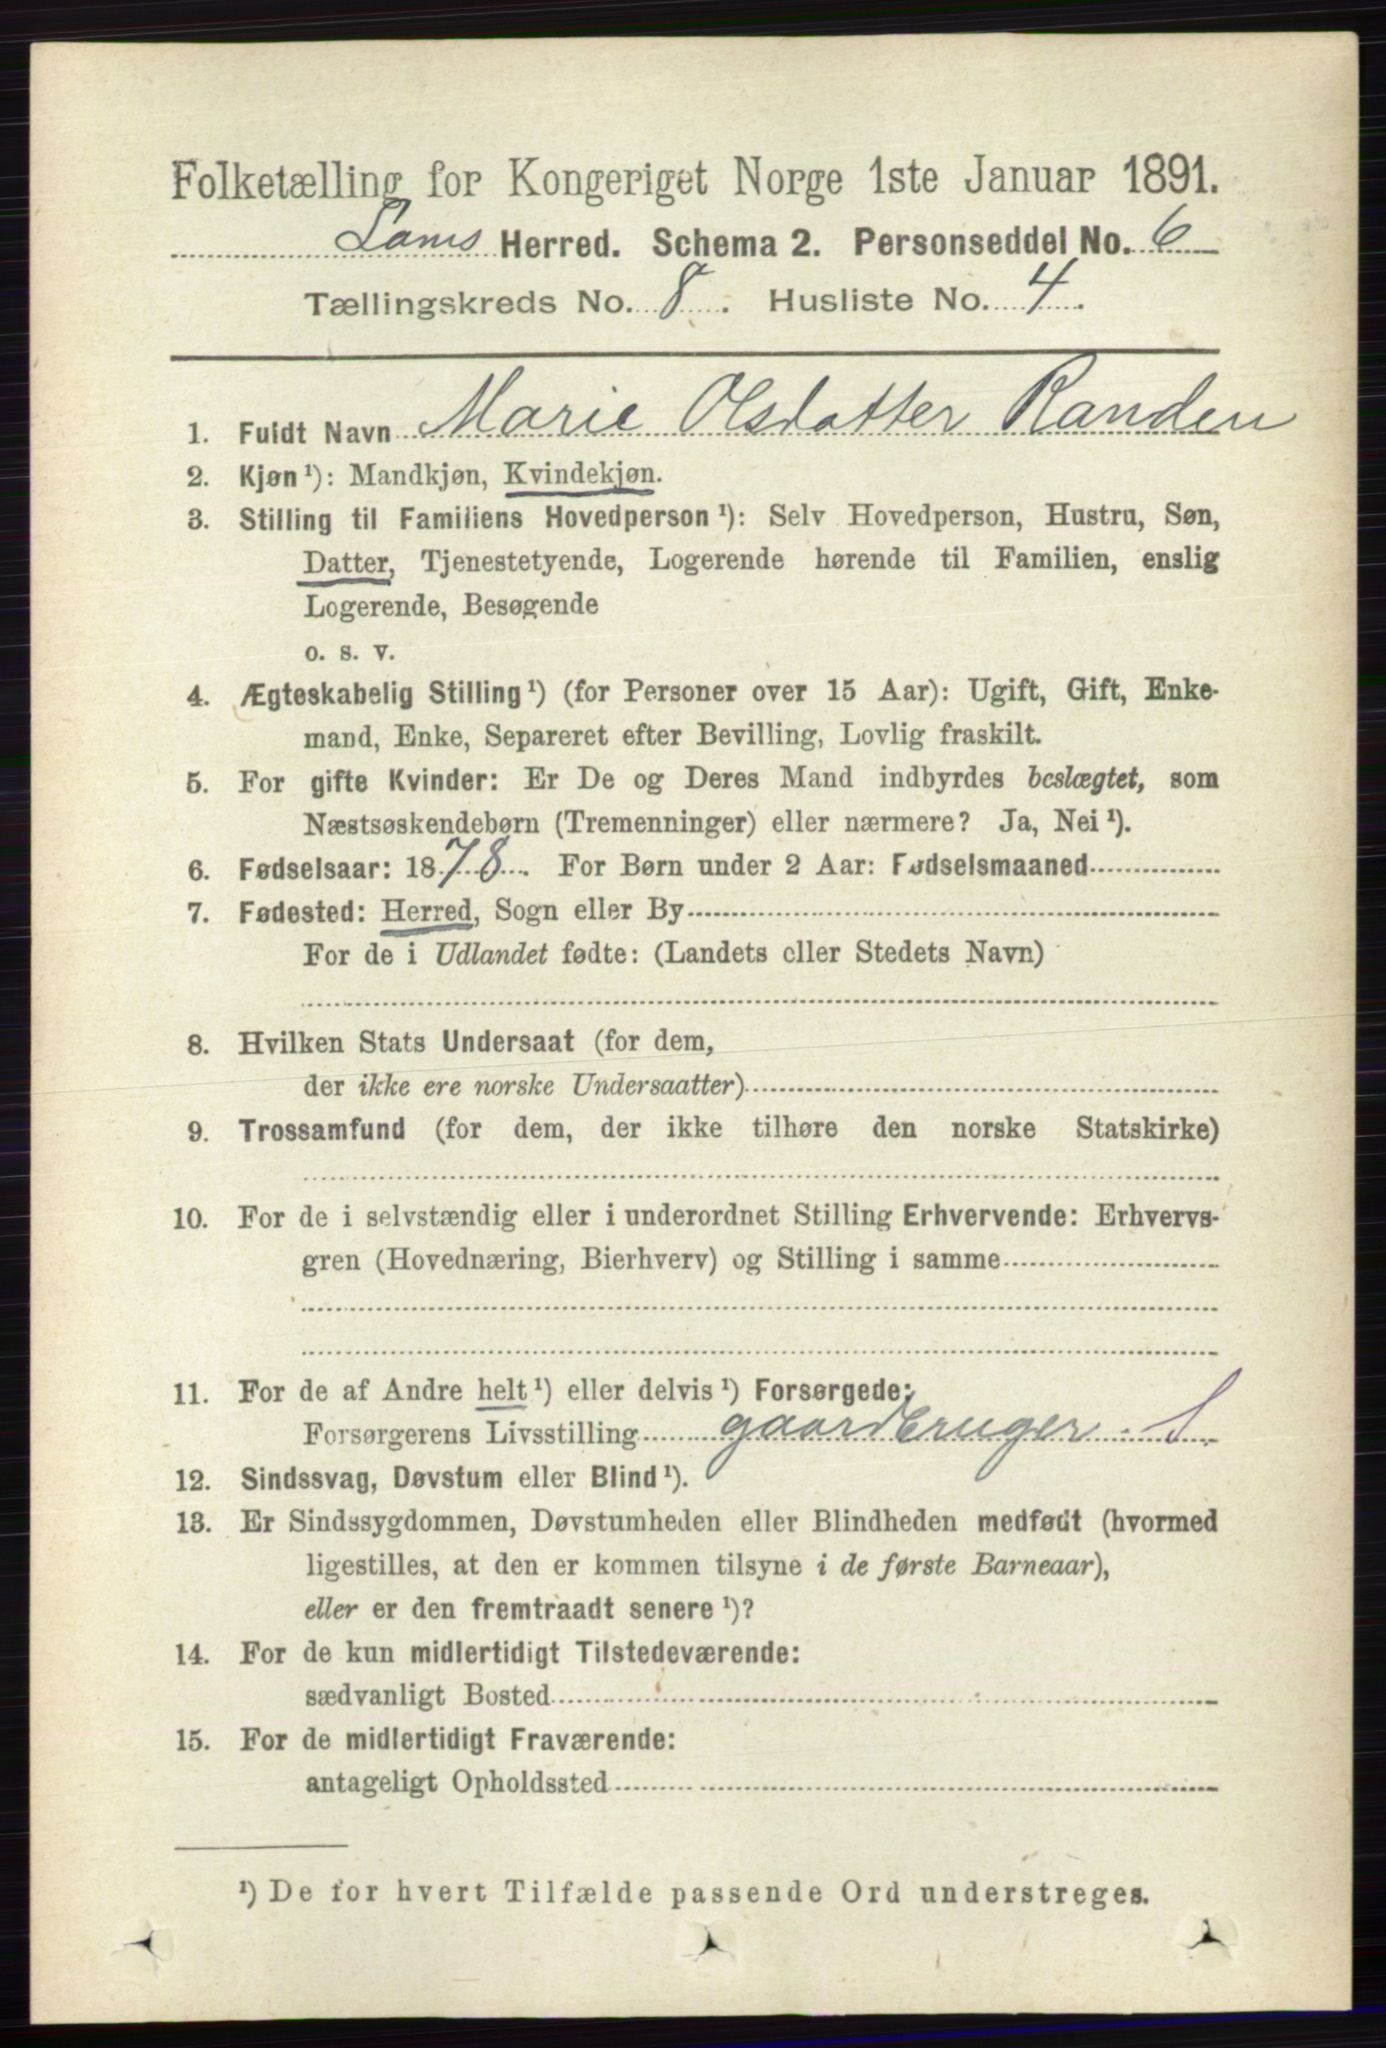 Folketælling for Kongeriget Norge 1ste Januar 1891.
Loms Herred. Schema 2. Personseddel No. 6
Tællingskreds No. 8. Husliste No. 4.
1. Fuldt Navn Marie Olsdatter Randen
2. Kjøn¹): Mandkjøn, Kvindekjøn.
3. Stilling til Familiens Hovedperson¹): Selv Hovedperson, Hustru, Søn,
Datter, Tjenestetyende, Logerende hørende til Familien, enslig
Logerende, Besøgende
o. s. v.
4. Ægteskabelig Stilling¹) (for Personer over 15 Aar): Ugift, Gift, Enke-
mand, Enke, Separeret efter Bevilling, Lovlig fraskilt.
5. For gifte Kvinder: Er De og Deres Mand indbyrdes beslægtet, som
Næstsøskendebørn (Tremenninger) eller nærmere? Ja, Nei¹).
6. Fødselsaar: 1878. For Børn under 2 Aar: Fødselsmaaned
7. Fødested: Herred, Sogn eller By
For de i Udlandet fødte: (Landets eller Stedets Navn)
8. Hvilken Stats Undersaat (for dem,
der ikke ere norske Undersaatter)
9. Trossamfund (for dem, der ikke tilhøre den norske Statskirke)
10. For de i selvstændig eller i underordnet Stilling Erhvervende: Erhvervs-
gren (Hovednæring, Bierhverv) og Stilling i samme
11. For de af Andre helt¹) eller delvis¹) Forsørgede:
Forsørgerens Livsstilling gaardbruger. S.
12. Sindssvag, Døvstum eller Blind¹).
13. Er Sindssygdommen, Døvstumheden eller Blindheden medfødt (hvormed
ligestilles, at den er kommen tilsyne i de første Barneaar),
eller er den fremtraadt senere¹)?
14. For de kun midlertidigt Tilstedeværende:
sædvanligt Bosted
15. For de midlertidigt Fraværende:
antageligt Opholdssted
¹) De for hvert Tilfælde passende Ord understreges.